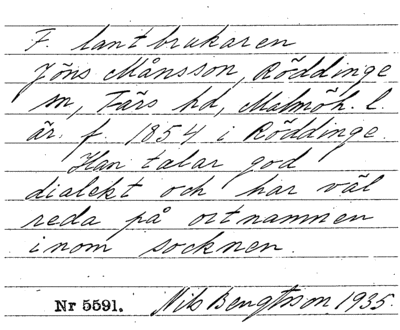 F. lantbrukaren
Jöns Månsson, Röddinge
sn, Färs hd, Malmöh. l.
är f. 1854 i Röddinge.
Han talar god
dialekt och har väl
reda på ortnamnen
inom socknen.
Nr 5591. Nils Bengtsson 1935.